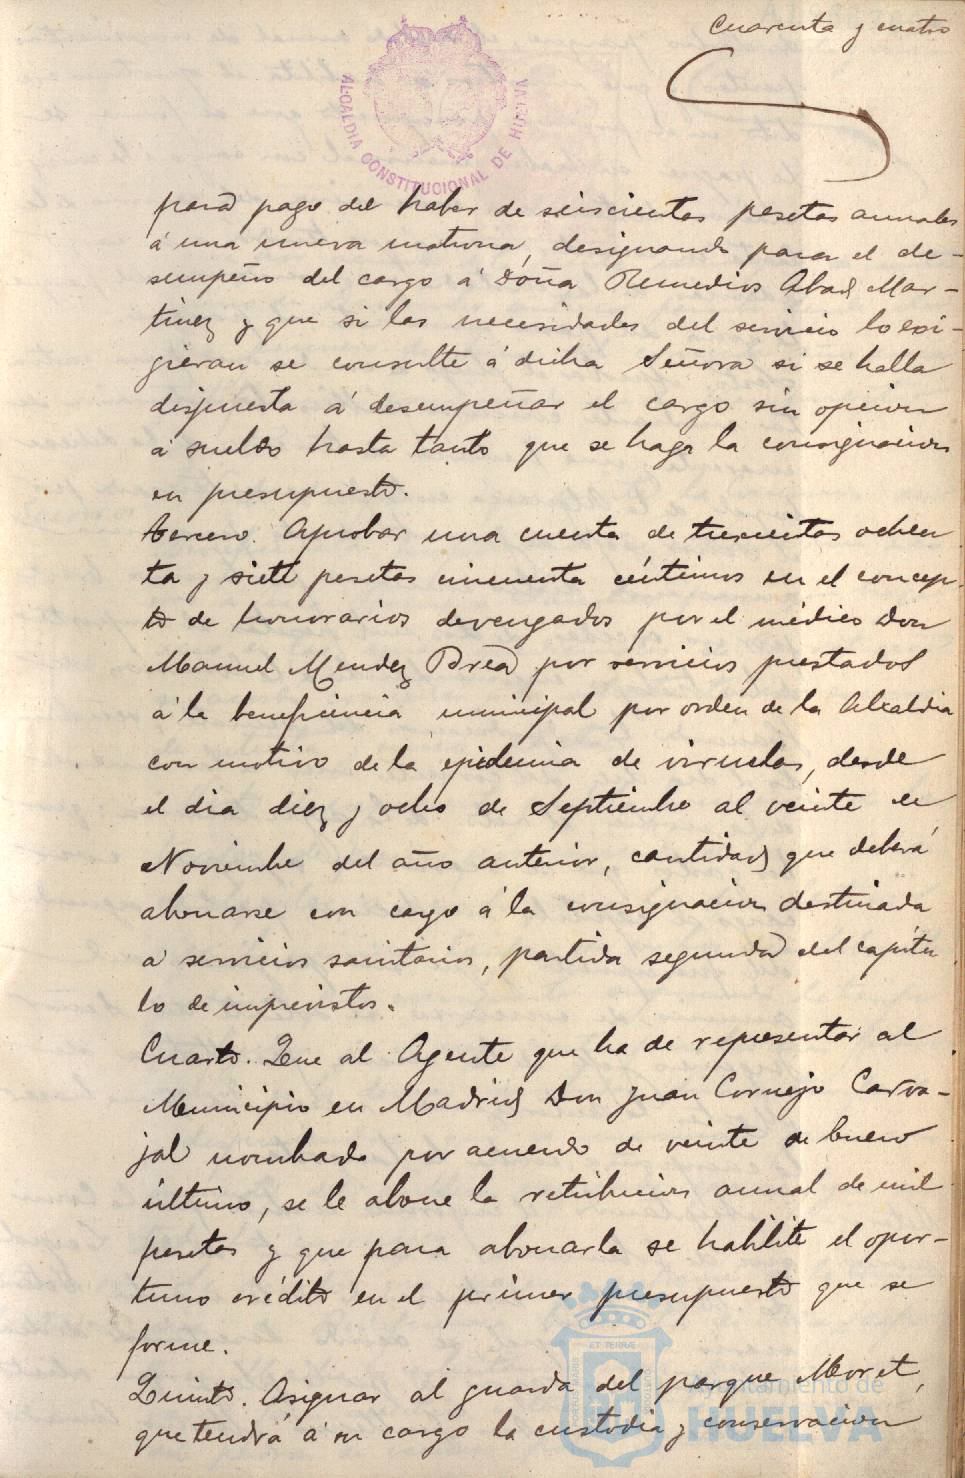 Cuarenta y cuatro
ALCALDIA CONSTITUCIONAL DE HUELVA
para pago del haber de seiscientas pesetas anuales
á una nueva matrona, designando para el de-
sempeño del cargo á Doña Remedios Abad Mar-
tinez y que si las necesidades del servicio lo exi-
gieran se consulte á dicha Señora si se halla
dispuesta á desempeñar el cargo sin opcion
á sueldo hasta tanto que se haga la consignacion
en presupuesto.
Tercero. Aprobar una cuenta de trescientas ochen
ta y siete pesetas cincuenta céntimos en el concep-
to de honorarios devengados por el médico Don
Manuel Mendez Brea por servicios prestados
á la beneficencia municipal por orden de la Alcaldia
con motivo de la epidemia de viruelas, desde
el dia diez y ocho de Septiembre al veinte de
Noviembre del año anterior, cantidad que deberá
abonarse con cargo á la consignacion destinada
á servicios sanitarios, partida segunda del capítu
lo de imprevistos.
Cuarto. Que al Agente que ha de representar al
Municipio en Madrid Don Juan Cornejo Carva-
jal nombrado por acuerdo de veinte de Enero
último, se le abone la retribucion anual de mil
pesetas y que para abonarla se habilite el opor-
tuno crédito en el primer presupuesto que se
forme.
Quinto. Asignar al guarda del parque Moret,
que tendrá á su cargo la custodia y conservacion
ET TERRÆ
Ayuntamiento de
HUELVA